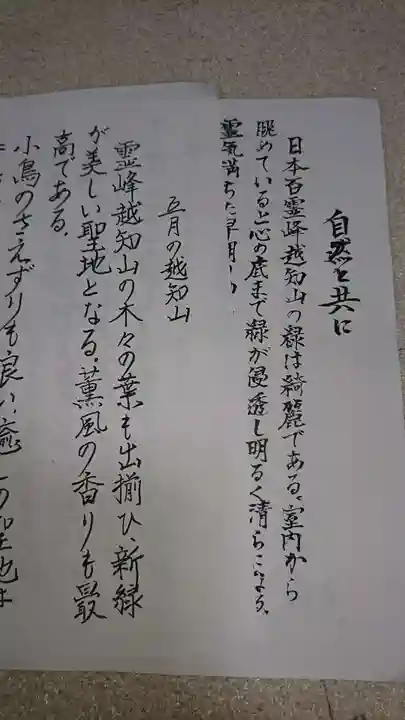 自然と共に
日本百霊峰越知山の緑は綺麗である。室内から
眺めていると心の底まで緑が浸透し明るく清らかになる。
霊気満ちた早朝の
五月の越知山
霊峰越知山の木々の葉も出揃ひ、新緑
が美しい聖地となる。薫風の香りも最
高である。
小鳥のさえずりも良い、癒しの聖地